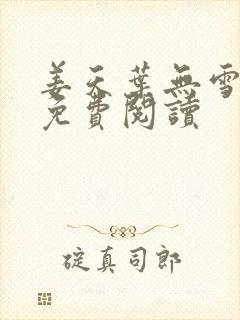 姜天葉無雪
免費閱讀
碇真司郎